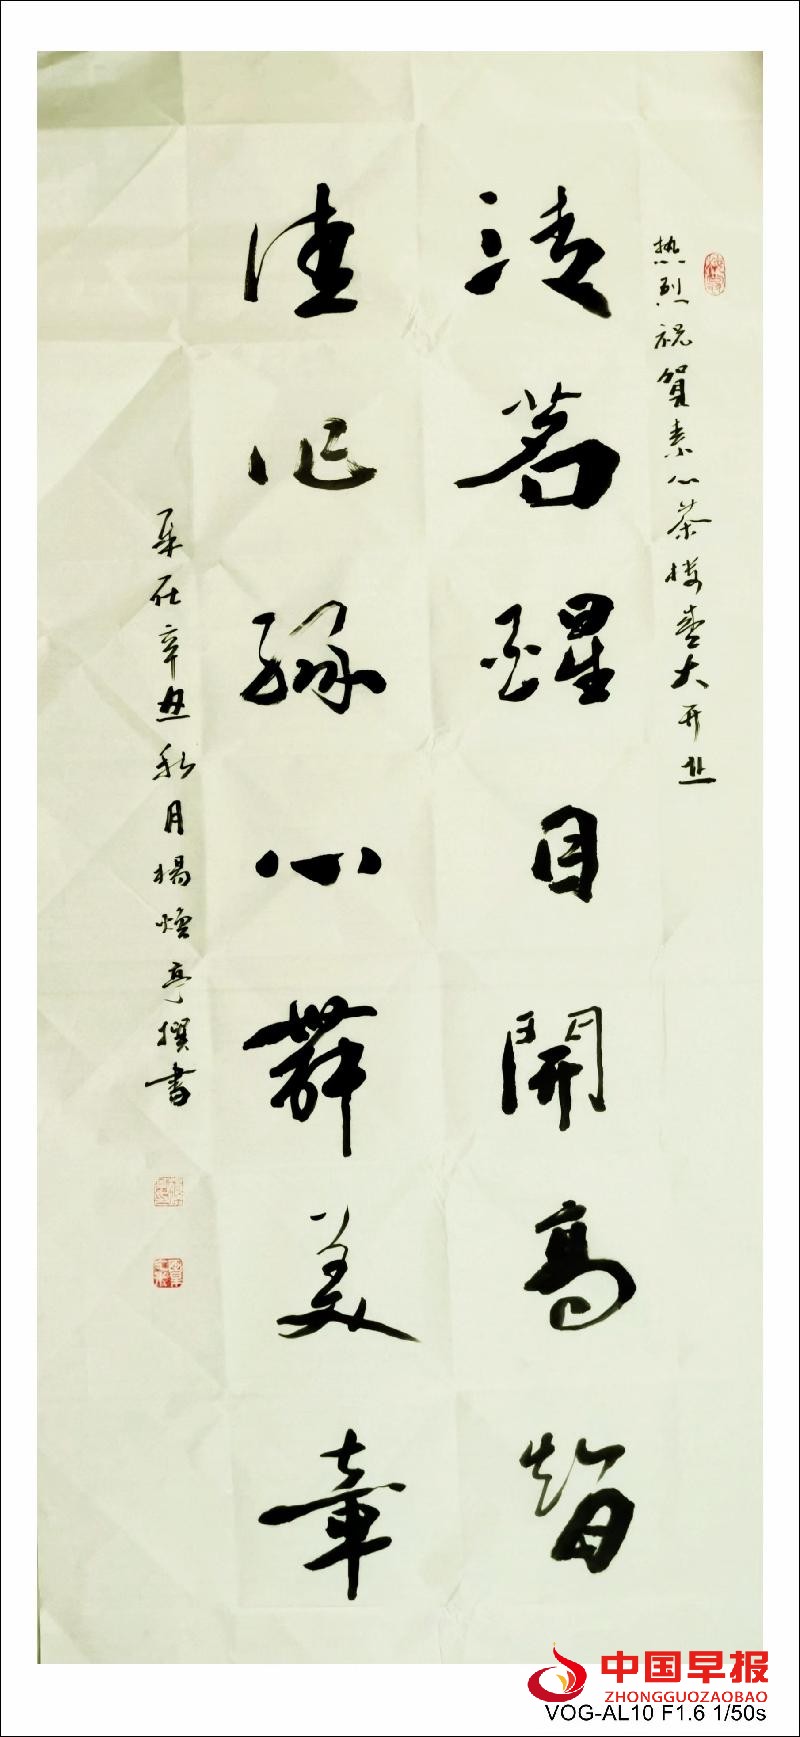 热烈祝贺素心茶楼盛大开业
清茗醒目開高智
佳作緣心舞美章
歲在辛丑秋月楊煥亭撰書
中国早报
ZHONGGUOZAOBAO
VOG-AL10 F1.6 1/50s